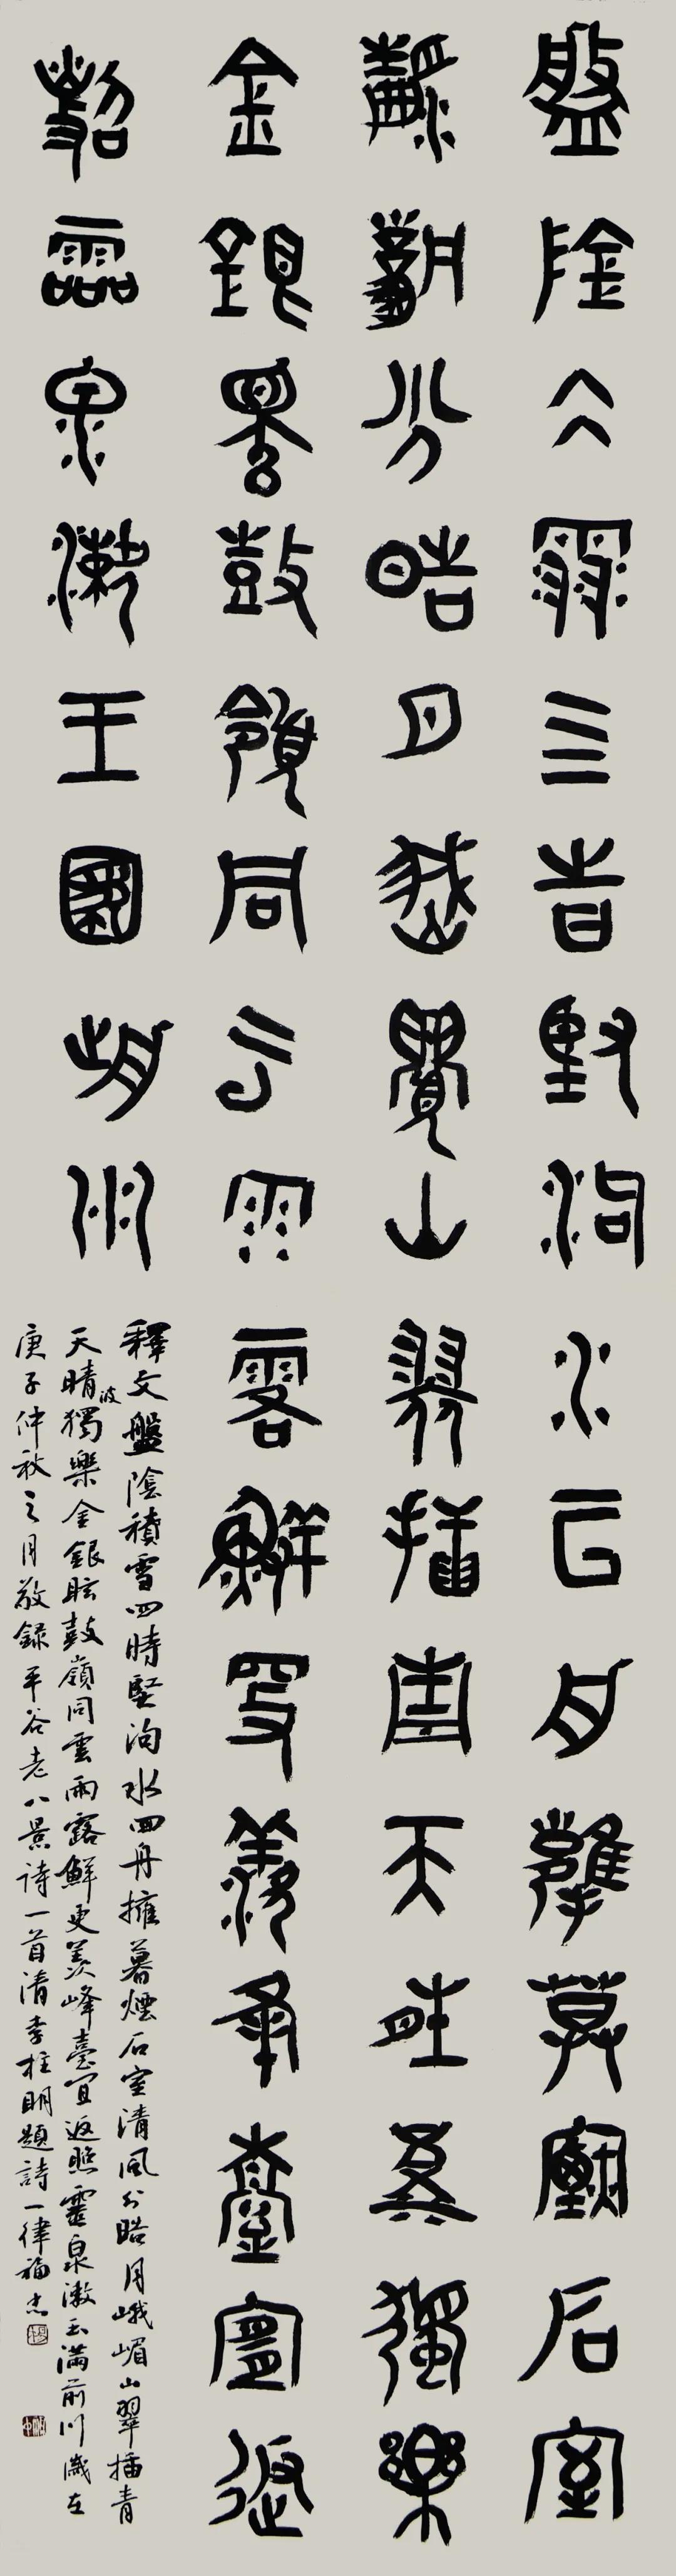 盤陰積雪四時堅泃水回舟擁暮煙石室
清風分晧月峨嵋山翠插青天晴波獨樂
金銀眩鼓嶺同雲雨露鮮更羨峰臺宜返
照靈泉漱玉滿前川
釋文盤陰積雪四時堅泃水回舟擁暮煙石室清風分晧月峨嵋山翠插青
天晴波獨樂金銀眩鼓嶺同雲雨露鮮更羨峰臺宜返照靈泉漱玉滿前川歲在
庚子仲秋之月敬錄平谷老八景詩一首清李柱明題詩一律福忠